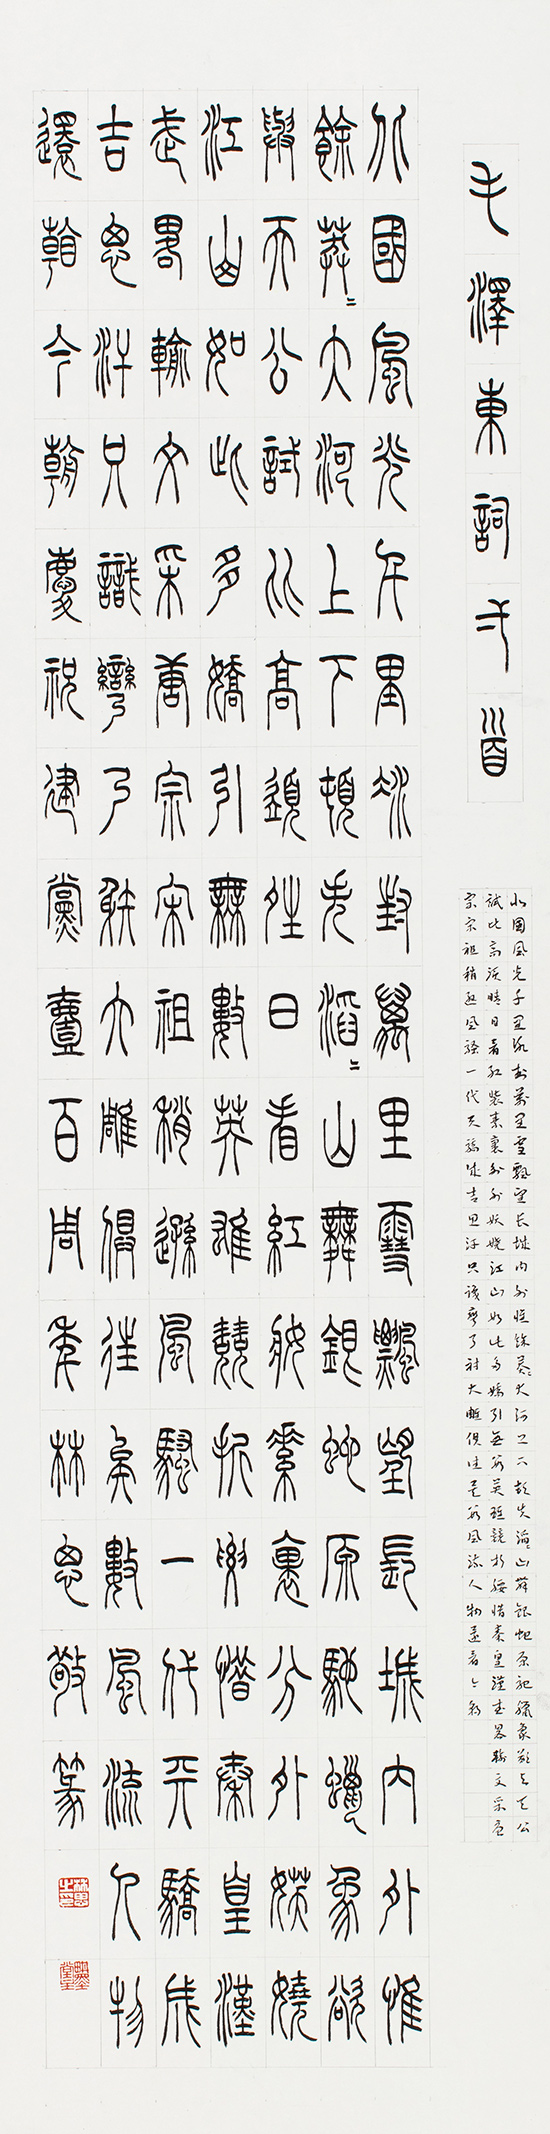 毛澤東詞弌首
北國風光千里冰封萬里雪飄望長城内外惟餘莽〻大河上下頓失滔〻山舞銀蛇原馳蠟象欲与天公
試比高須晴日看紅裝素裹分外妖嬈江山如此多嬌引無數英雄競折腰惜秦皇漢武略輸文采唐
宗宋祖稍遜風騷一代天驕成吉思汗只識彎弓射大雕俱往矣數風流人物還看今朝
北國風光千里冰封萬里雪飄望長城内外惟
餘莽〻大河上下頓失滔〻山舞銀蛇原馳蠟象欲
與天公試比高須晴日看紅妝素裹分外妖嬈
江山如此多嬌引無數英雄競折腰惜秦皇漢
武略輸文采唐宗宋祖稍遜風騷一代天驕成
吉思汗只識彎弓射大雕俱往矣數風流人物
還看今朝慶祝建黨壹百周年林思敬篆